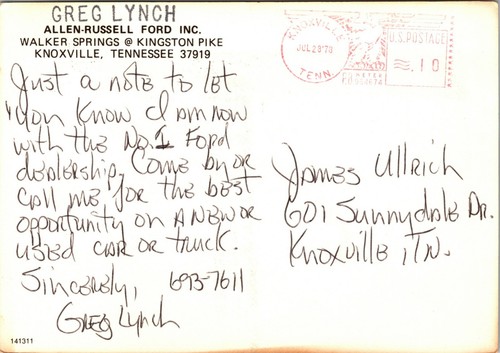 GREG LYNCH
ALLEN-RUSSELL FORD INC.
WALKER SPRINGS @ KINGSTON PIKE
KNOXVILLE, TENNESSEE 37919
Just a note to let
you know I am now
with the No. 1 Ford
dealership. Come by or
call me for the best
opportunity on A NEW OR
USED CAR OR truck.
Sincerely, 693-7611
Greg Lynch
141311
KNOXVILLE
JUL 28 '78
TENN.
U.S. POSTAGE
.10
James Ullrich
601 Sunnydale Dr.
Knoxville, TN.